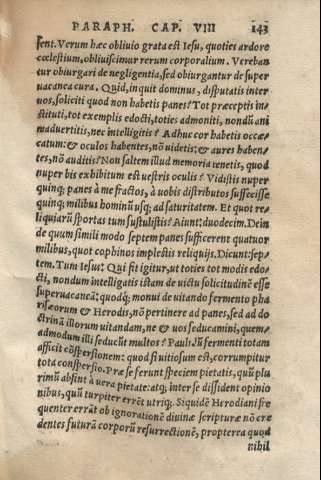 PARAPH. CAP. VIII 143
sent. Verum hæc obliuio grata est Iesu, quoties ardore
cœlestium, obliuiscimur rerum corporalium. Vereban
tur obiurgari de negligentia, sed obiurgantur de super
uacanea cura. Quid, inquit dominus, disputatis inter
uos, soliciti quod non habetis panes? Tot præceptis in-
stituti, tot exemplis edocti, toties admoniti, nondũ ani
maduertitis, nec intelligitis? Adhuc cor habetis occæ-
catum: & oculos habentes, nõ uidetis: & aures haben-
tes, nõ auditis? Non saltem illud memoria tenetis, quod
nuper bis exhibitum est uestris oculis? Vidistis nuper
quinq; panes à me fractos, à uobis distributos suffecisse
quinq; milibus hominũ usq; ad saturitatem. Et quot re-
liquiarũ sportas tum sustulistis? Aiunt: duodecim. Dein
de quum simili modo septem panes sufficerent quatuor
milibus, quot cophinos implestis reliquijs. Dicunt: sep-
tem. Tum Iesus: Qui fit igitur, ut toties tot modis edo-
cti, nondum intelligatis istam de uictu solicitudinẽ esse
superuacaneã: quodq; monui de uitando fermento pha
risæorum & Herodis, nõ pertinere ad panes, sed ad do
ctrinã illorum uitandam, ne & uos seducamini, quem-
admodum illi seducũt multos? Paulũ fermenti totam
afficit cõspersionem: quod si uitiosum est, corrumpitur
tota conspersio. Præ se ferunt speciem pietatis, quũ plu
rimũ absint à uera pietate: atq; inter se dissident opinio
nibus, quũ turpiter errẽt utriq;. Siquidẽ Herodiani fre
quenter errãt ob ignorationẽ diuinæ scripturæ nõ cre
dentes futurã corporũ resurrectionẽ, propterea quod
nihil